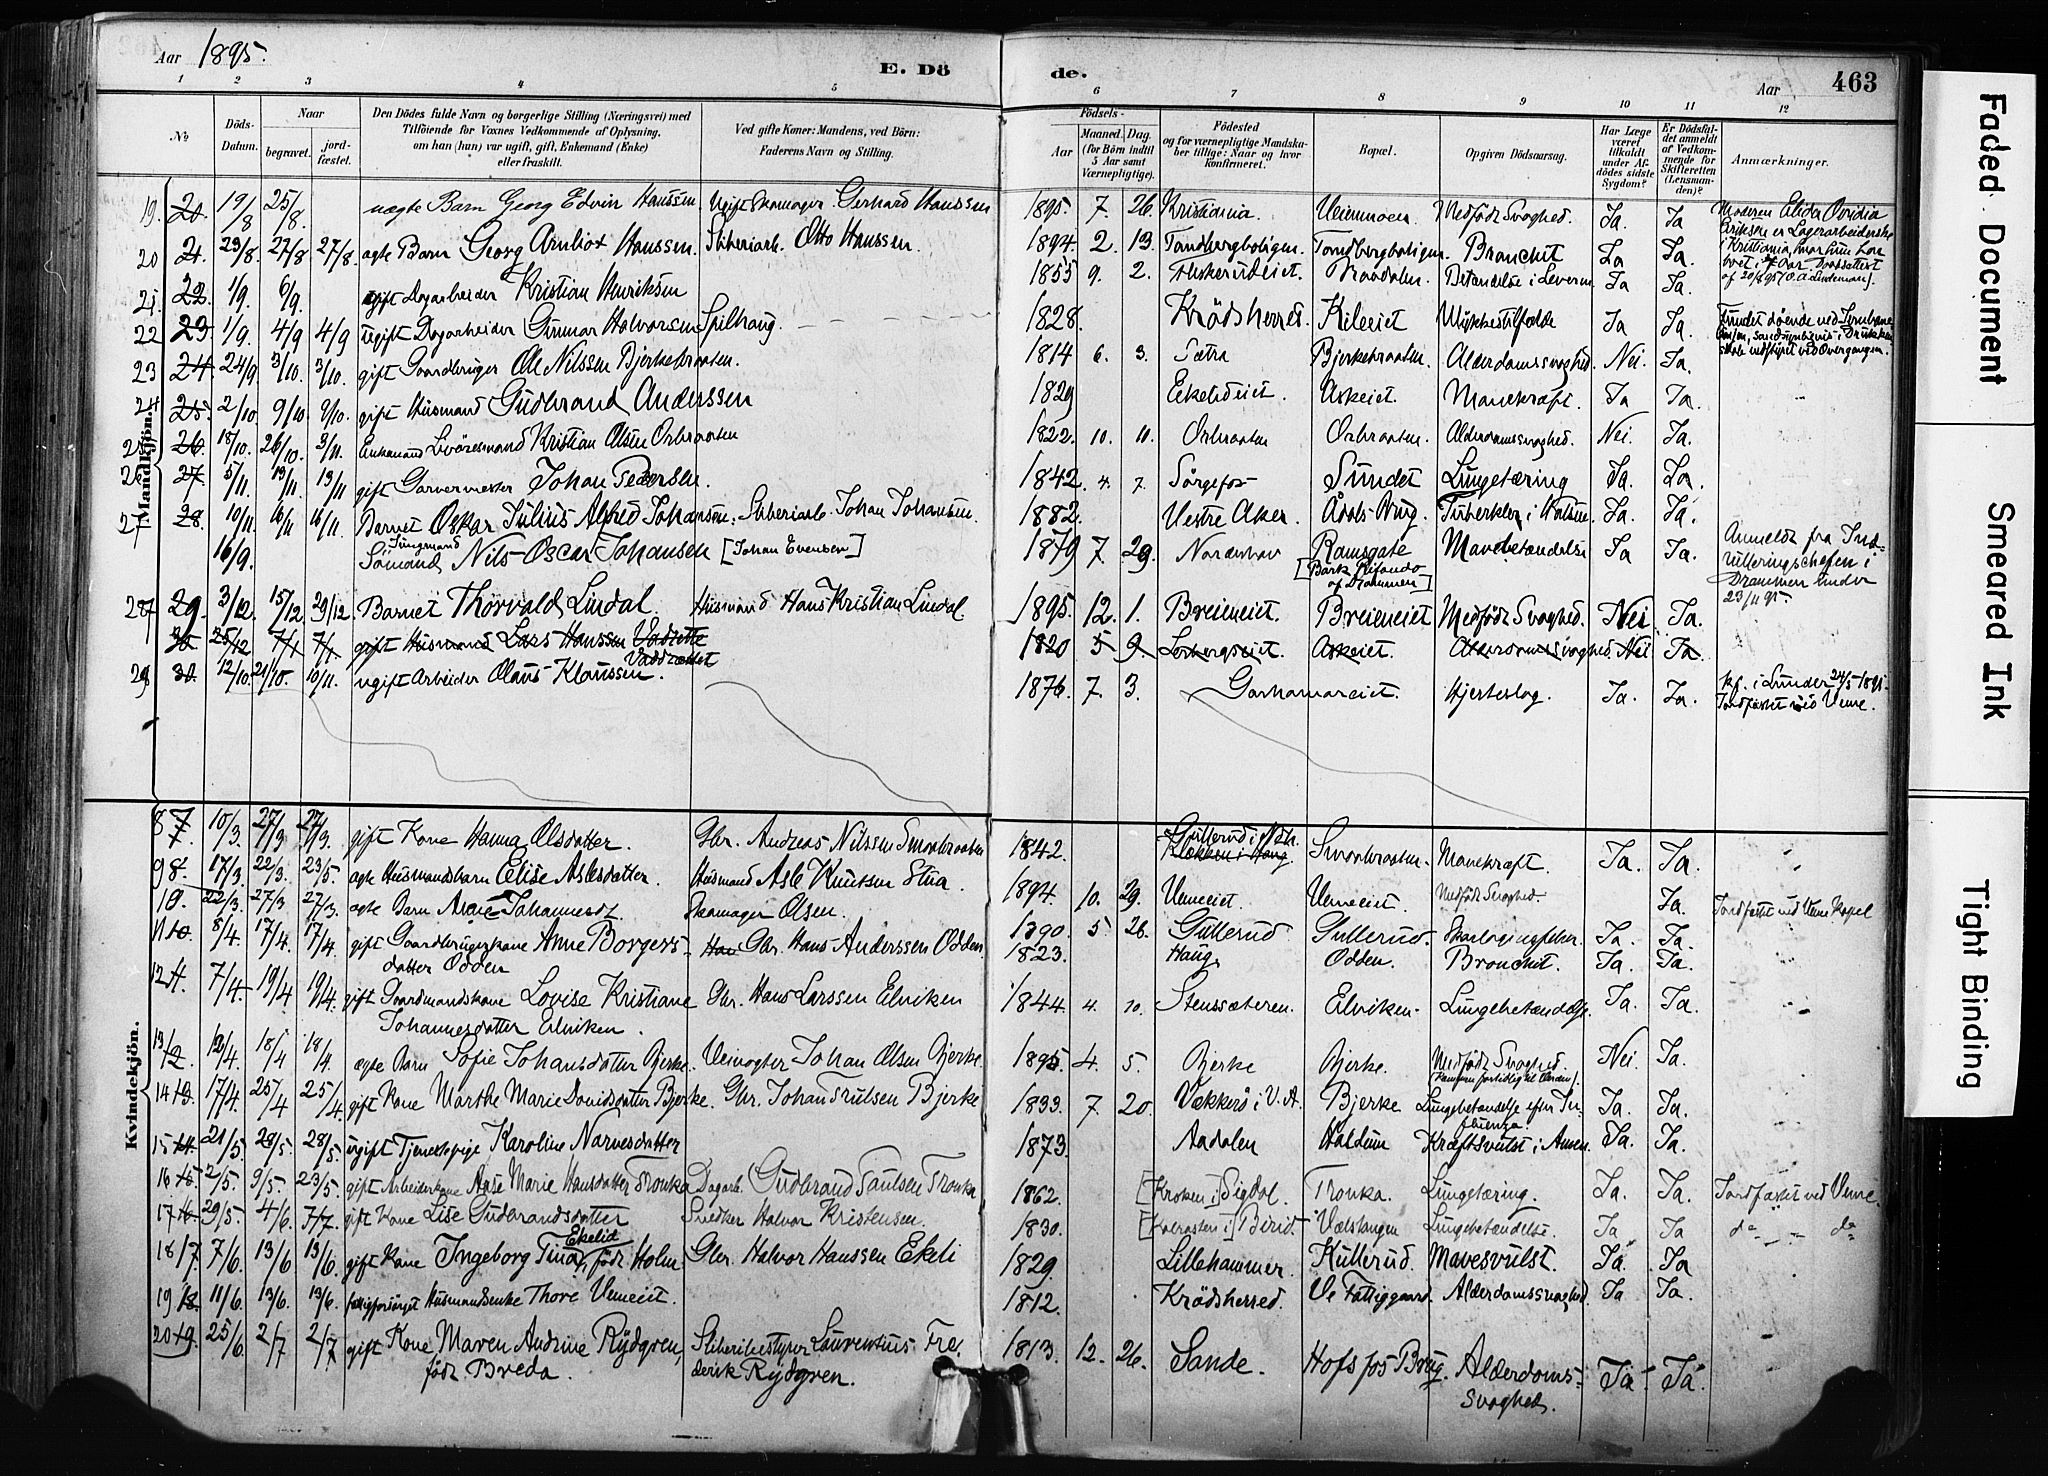 Aar 1895.
E. Dö
de.
Aar
463
1 2 3 4 5 6 7 8 9 10 11 12
No
Döds-Datum.
Naar
begravet.
jord-fæstet.
Den Dödes fulde Navn og borgerlige Stilling (Næringsvei) med
Tilföiende for Voxnes Vedkommende af Oplysning,
om han (hun) var ugift, gift, Enkemand (Enke)
eller fraskilt.
Ved gifte Koner: Mandens, ved Börn:
Faderens Navn og Stilling.
Födsels-
Aar
Maaned. Dag.
(for Börn indtil
5 Aar samt
Værnepligtige).
Födested
og for værnepligtige Mandska-
ber tillige: Naar og hvor
konfirmeret.
Bopæl.
Opgiven Dödsaarsag.
Har Læge
været
tilkaldt
under Af-
dödes sidste
Sygdom?
Er Dödsfal-
det anmeldt
af Vedkom-
mende for
Skifteretten
(Lensman-
den)?
Anmærkninger.
Mandkjön.
19. 20. 19/8 25/8. uægte Barn Georg Edvin Hanssen Ugift Skomager Gerhard Hanssen 1895. 7. 26. Kristiania. Veienmoen. Medfödt Svaghed. Ja. Ja Moderen Elida
Eriksen er Lagerarbeiderske
i Kristiania, hvor hun har
20 21. 23/8. 27/8 27/8. ægte Barn Georg Arnliot Hanssen. Sliberiarb. Otto Hanssen. 1894. 2. 13. Tandbergboligen. Tandbergboligen. Bronchit Ja Ja.
21. 22. 1/9. 6/9. gift Dagarbeider Kristian Henriksen 1855 9. 2. Betændelse i Leveren Ja Ja.
22 23. 1/9. 4/9 4/9 ugift Dagarbeider Gunnar Halvorsen Spilhaug. 1828. Krödsherred. Kileeiet Ulykkestilfælde Ja Ja. Fundet döende ved Jernbane
23 24. 24/9. 3/10. 3/10. gift Gaardbruger Ole Nilssen Bjerkebraaten. 1814 6. 3. Sætra Bjerkebraaten. Alderdomssvaghed. Nei. Ja.
24 25. 2/10. 9/10 9/10. gift Husmand Gudbrand Anderssen 1829 Eekelideiet. Askeiet. Mavekræft. Ja Ja.
25 26. 18/10. 26/10. 3/11. Enkemand Kristian Olsen 1822. 10. 11. Alderdomssvaghed. Nei. Ja.
26 27. 5/11. 13/11. 13/11 gift Garvermester Johan Pedersen. 1842. 4. 7. Sörgefos Sundet Lungetæring Ja. Ja.
27 28. 10/11. 16/11 16/11. Barnet Oskar Julius Alfred Johansen. Sliberiarb. Johan Johansen. 1882. Vestre Aker. Ådals-Brug. Tuberkler i Ja. Ja.
16/9. Ungmand
Sömand Nils Oscar Johansen [Johan Evensen] 1879 7. 29. Norderhov Ramsgate Mavebetændelse Ja Ja. Anmeldt fra Ind-
rulleringschefen i
Drammen under
23/11 95.
of Drammen]
28 29. 3/12. 15/12. 29/12. Barnet Thorvald Lindal. Husmand Hans Kristian Lindal 1895. 12. 1. Breieneiet. Breieneiet Medfödt Svaghed. Nei Ja.
30 25/12 7/1 7/1. gift Husmand Lars Hanssen Vadrette
Vaddrættet 1820 5 9. Lorbergseiet. Askeiet. Alderdomssvaghed. Nei. Ja.
29 30. 12/10. 21/10. 10/11. ugift Arbeider Olaus Klaussen. 1876. 7. 3. Garhamareiet. Hjerteslag. Ja. Ja. kf. i Lunder 24/5 1891.
Jordfæstet ved Veme.
Kvindekjön.
8 7. 10/3. 27/3 27/3. gift Kone Hanna Olsdatter. Gbr. Andreas Nilssen Smorbraaten 1842. Gullerud i Ndh.
Bækken i Haug. Smorbraaten. Mavekræft Ja. Ja.
9 8. 17/3. 22/3. 23/5. ægte Husmandsbarn Elise Aslesdatter. Husmand Asle Knutsen Stua. 1894. 10. 29. Vemeeiet. Vemeeiet. Medfödt Svaghed. Ja. Jordfæstet ved Veme Kapel
10. 22/3. 27/3 27/3. ægte Barn Johannesdt. Skomager Olsen. 1890. 5 26. Gullerud Gullerud. Ja. Ja.
11 10. 8/4. 17/4. 17/4. gift Gaardbrugerkone Anne Borgers-
datter Odden Gbr. Hans Anderssen Odden. 1823. Haug. Odden. Bronchit. Ja. Ja.
12 11. 7/4. 19/4 19/4. gift Gaardmandskone Lovise Kristiane
Johannesdatter Elviken. Gbr. Hans Larssen Elviken 1844 4. 10. Stenssæteren. Elviken. Lungebetændelse. Ja. Ja.
13 12 13/4. 18/4 18/4. ægte Barn Sofie Johansdatter Bjerke. Veivogter Johan Olsen Bjerke. 1895. 4. 5. Bjerke Bjerke. Medfödt Svaghed.
(kommen fortidlig til Verden). Nei Ja.
14 13. 17/4. 25/4 25/4. gift Kone Marthe Marie Davidsdatter Bjerke. Gbr. Johan Trulsen Bjerke 1833. 7. 20. Vækkerö i V. A. Bjerke Lungebetændelse efter In-
fluenza. Ja. Ja.
15 14. 21/5 28/5. 28/5. ugift Tjenestepige Karoline Narvesdatter 1873. Aadalen Haldum Kræftsvulst i Ja. Ja.
16 15. 2/5. 9/5. 23/5. gift Arbeiderkone Anne Marie Hansdatter Tronka Dagarb. Gudbrand Paulsen Tronka 1862. [Kroken i] Sigdal. Tronka. Lungetæring. Ja. Ja. Jordfæstet ved Veme.
17 16. 29/5. 4/6. 7/7. gift Kone Lise Gudbrandsdatter Snedker Halvor Kristensen. 1830. Birid. Vælstangen Lungebetændelse. Ja Ja do do
18 17. 7/6. 13/6 13/6. gift Kone Ingeborg Tina Ekelid, född Holm Gbr. Halvor Hanssen Ekeli 1829. Lillehammer. Kullerud. Mavesvulst. Ja. Ja
19 18. 11/6. 13/6. 13/6. fattigforsörget Husmandsenke Thore Vemeeiet. 1812. Krödsherred. Ve Fattiggaard. Alderdomssvaghed. Ja Ja.
20 19. 25/6. 2/7 2/7 gift Kone Maren Andrine Rydgren,
född Breda. Sliberibestyrer Laurentius Fre-
derik Rydgren. 1813. 12. 26. Sande. Hofsfos Brug. Alderdoms-
svaghed. Ja Ja
Faded Document
Smeared Ink
Tight Binding